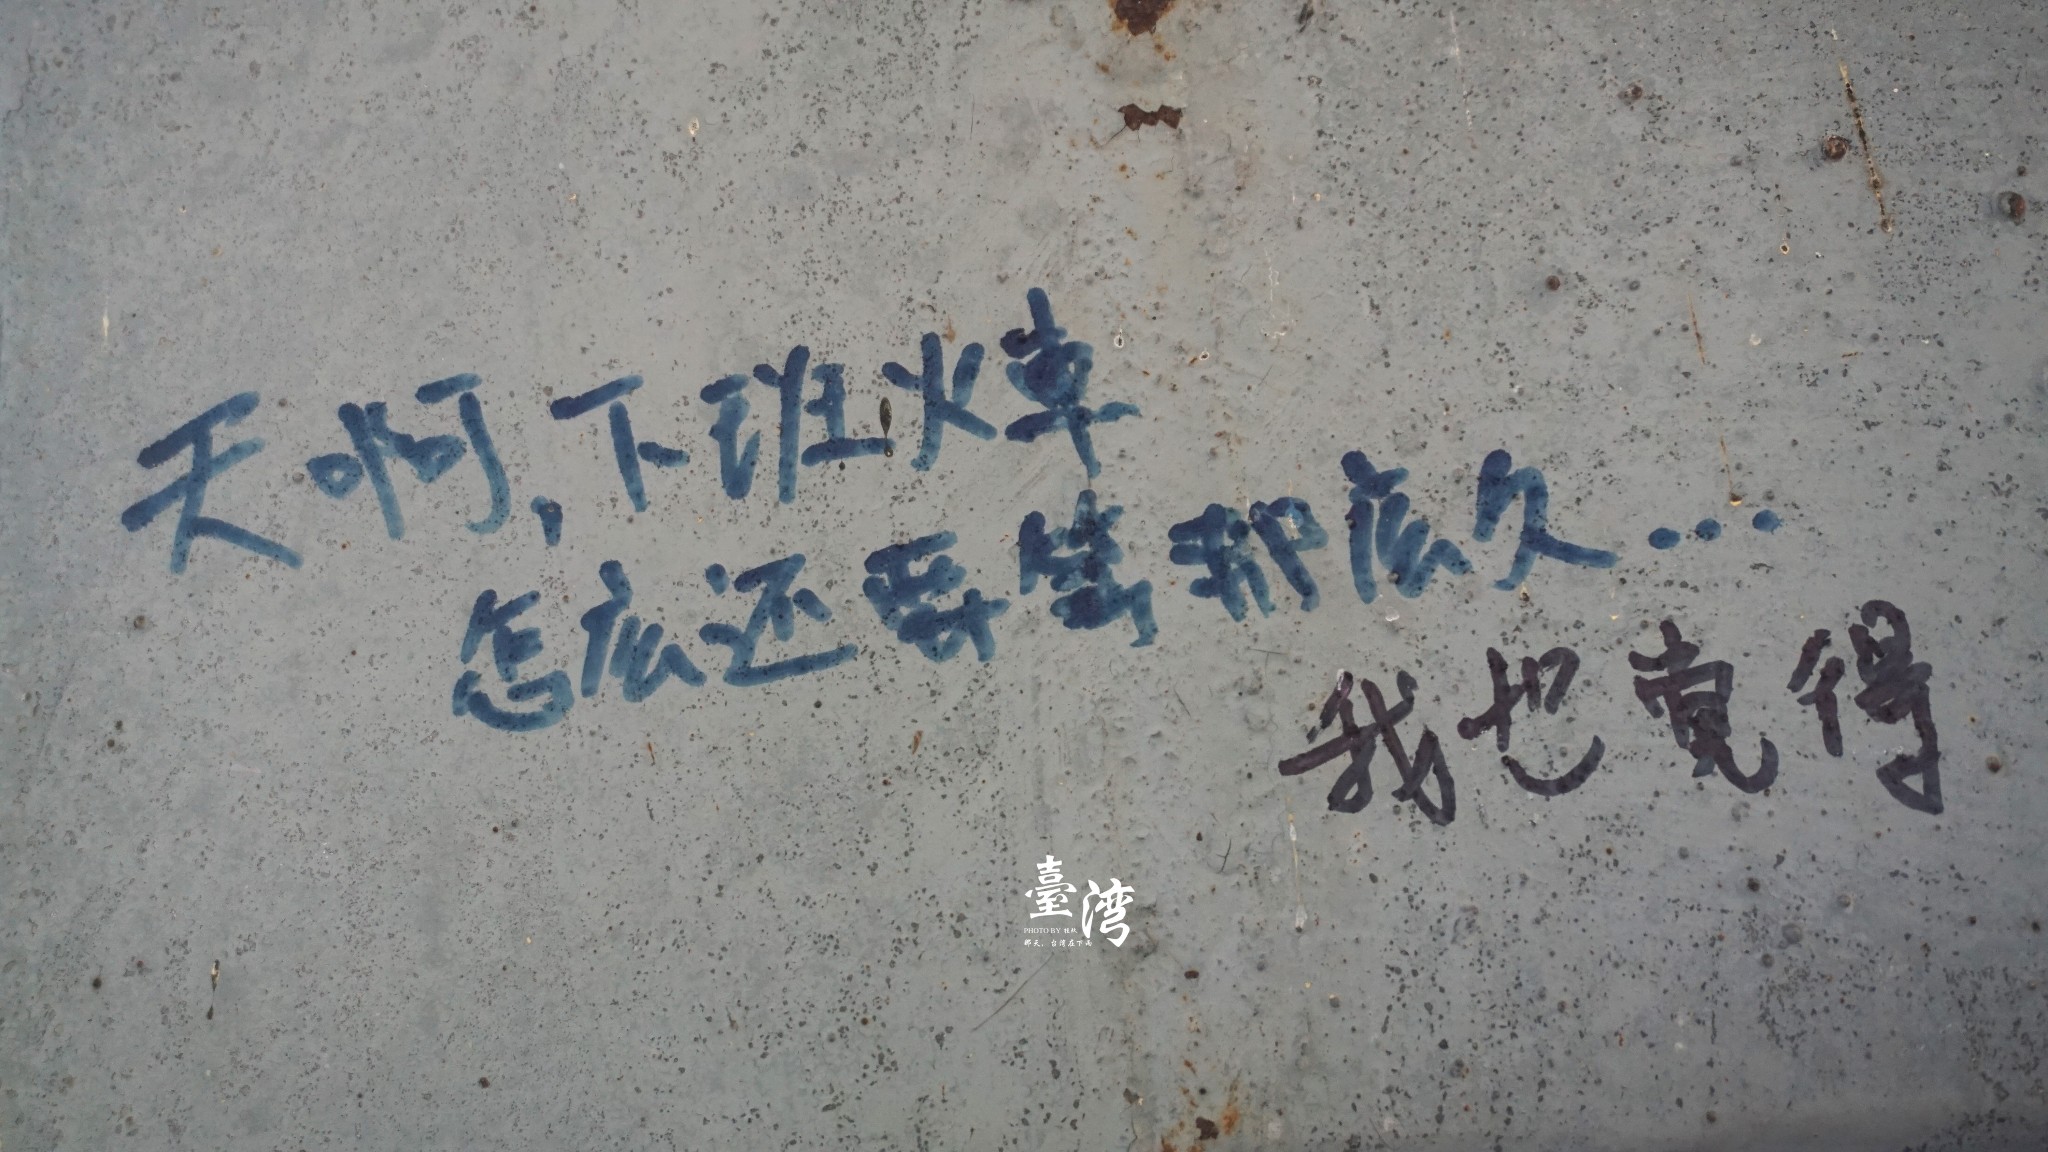 天啊,下班火車
怎么还要等那底久...
我也覚得
臺湾
PHOTO BY
那天，台湾在下雨